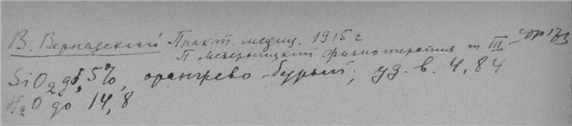 В. Вернадский Практ. медиц. 1915 г
П. Меверницкий Физиотерапия т III
SiO₂ до 5%, оранжево-бурый; уд. в. 4,84
H₂O до 14,8